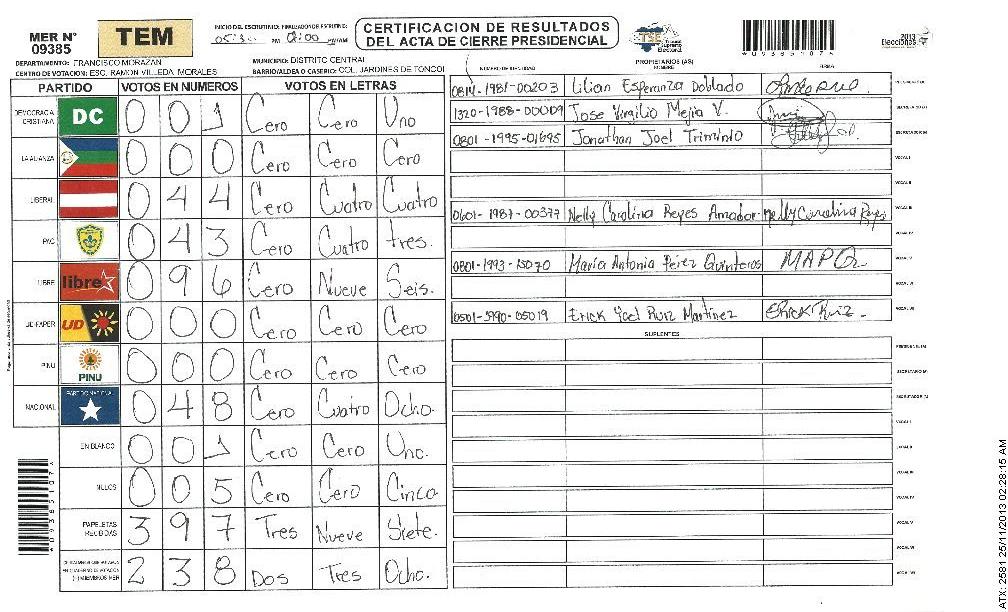 MER N° 09385
TEM
INICIO DEL ESCRUTINIO: FINALIZACION DE ESCRUTINIO:
PM 01:00 PM/AM
CERTIFICACION DE RESULTADOS
DEL ACTA DE CIERRE PRESIDENCIAL
TSE Tribunal Supremo Electoral
*09385107*
2013 Elecciones
DEPARTAMENTO: FRANCISCO MORAZAN
MUNICIPIO: DISTRITO CENTRAL
CENTRO DE VOTACION: ESC. RAMON VILLEDA MORALES
BARRIO/ALDEA O CASERIO: COL. JARDINES DE TONCOI
NUMERO DE IDENTIDAD
PROPIETARIOS (AS)
NOMBRE
FIRMA
PARTIDO VOTOS EN NUMEROS VOTOS EN LETRAS
DEMOCRACIA CRISTIANA DC 0 0 1 Cero Cero Uno
LA ALIANZA 0 0 0 Cero Cero Cero
LIBERAL 0 4 4 Cero Cuatro Cuatro
PAC 0 4 3 Cero Cuatro tres.
LIBRE libre 0 9 6 Cero Nueve Seis.
UD-FAPER UD 0 0 0 Cero Cero Cero
PINU PINU 0 0 0 Cero Cero Cero
NACIONAL PARTIDO NACIONAL 0 4 8 Cero Cuatro Ocho.
EN BLANCO 0 0 1 Cero Cero Uno.
NULOS 0 0 5 Cero Cero Cinco
PAPELETAS RECIBIDAS 3 9 7 Tres Nueve Siete.
2 3 8 Dos Tres Ocho.
0814-1981-00203 Lilian Esperanza Doblado PRESIDENTE (A)
1320-1988-00009 Jose Virgilio Mejia V. SECRETARIO (A)
0801-1995-01695 Jonathan Joel Triminio ESCRUTADOR (A)
VOCAL I
VOCAL II
0601-1987-00377 Nelly Carolina Reyes Amador Nelly Carolina Reyes VOCAL III
VOCAL IV
0801-1993-15070 María Antonia Pérez Quinteros MAPQ VOCAL V
VOCAL VI
0501-1990-05019 Erick Yoel Ruiz Martinez Erick Ruiz. VOCAL VII
SUPLENTES
PRESIDENTE (A)
SECRETARIO (A)
ESCRUTADOR (A)
VOCAL I
VOCAL II
VOCAL III
VOCAL IV
VOCAL V
VOCAL VI
VOCAL VII
*09385107*
ATX: 2581 25/11/2013 02:28:15 AM